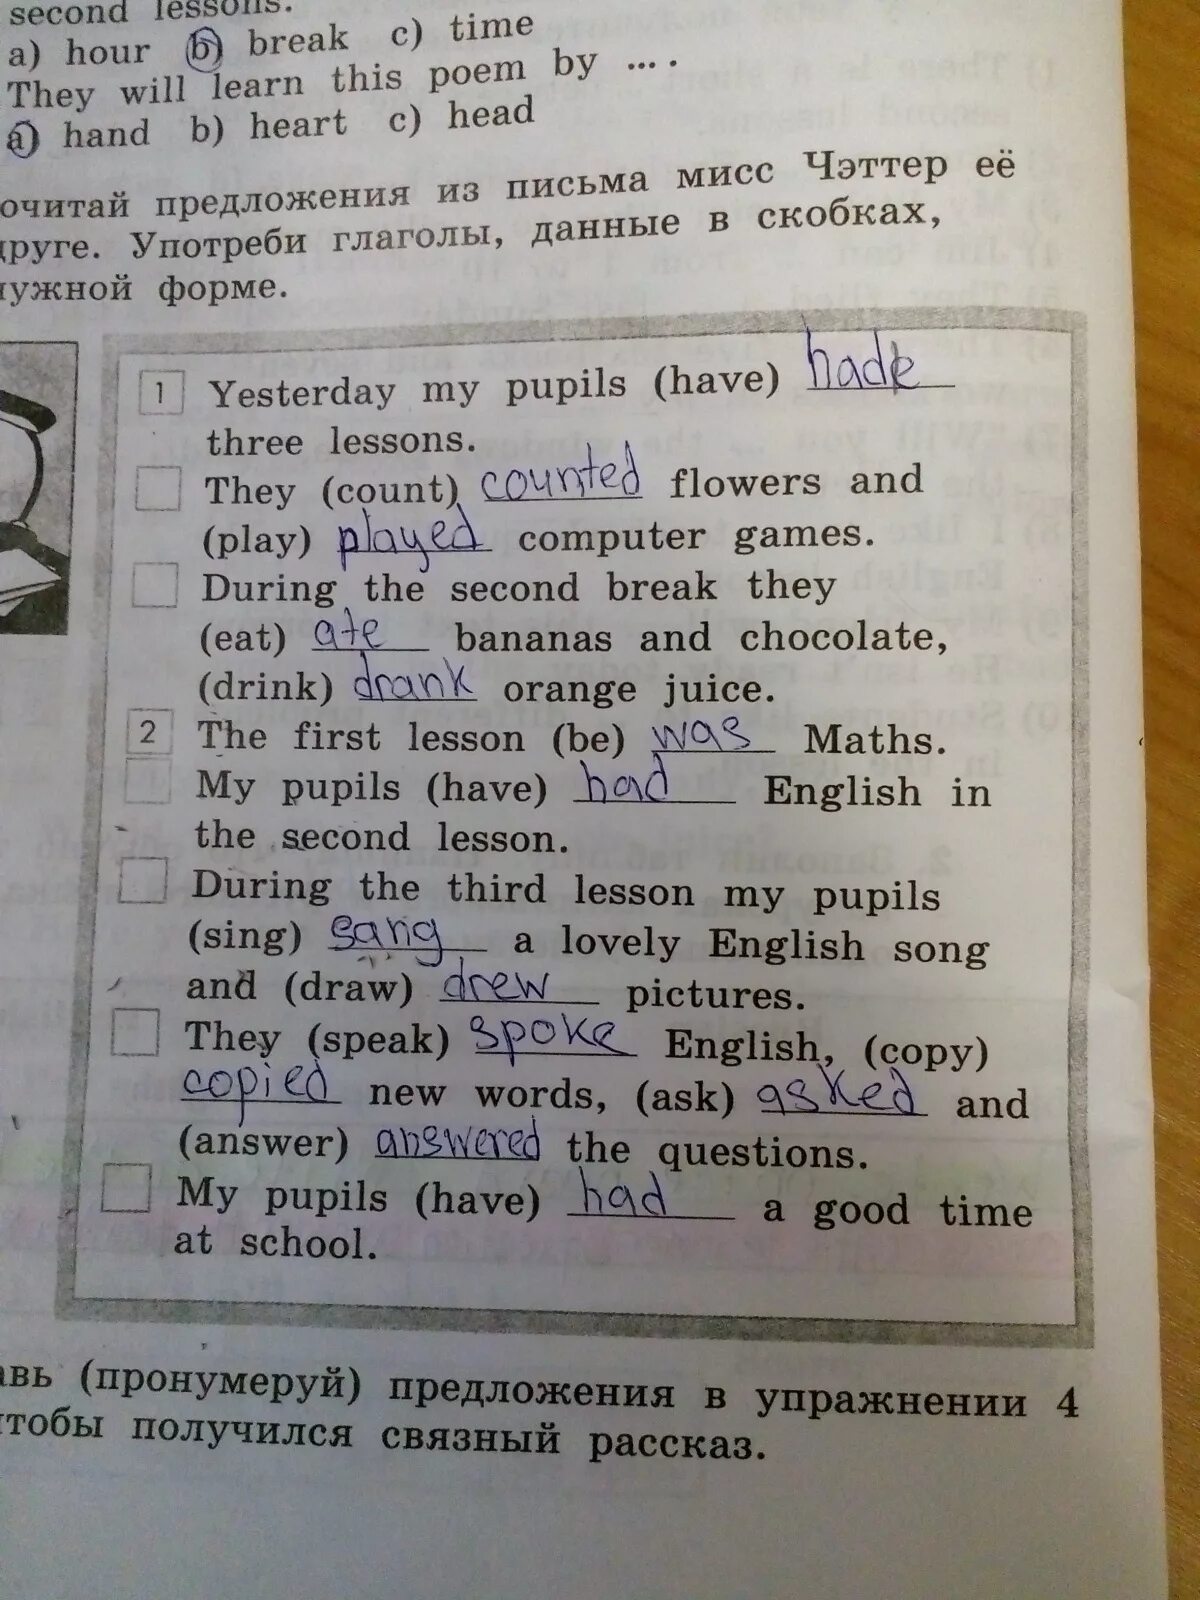 second lessons.
a) hour b) break c) time
They will learn this poem by ... .
a) hand b) heart c) head
очитай предложения из письма мисс Чэттер её
друге. Употреби глаголы, данные в скобках,
нужной форме.
1 Yesterday my pupils (have) had
three lessons.
They (count) counted flowers and
(play) played computer games.
During the second break they
(eat) ate bananas and chocolate,
(drink) drank orange juice.
2 The first lesson (be) was Maths.
My pupils (have) had English in
the second lesson.
During the third lesson my pupils
(sing) sang a lovely English song
and (draw) drew pictures.
They (speak) spoke English, (copy)
copied new words, (ask) asked and
(answer) answered the questions.
My pupils (have) had a good time
at school.
авь (пронумеруй) предложения в упражнении 4
чтобы получился связный рассказ.